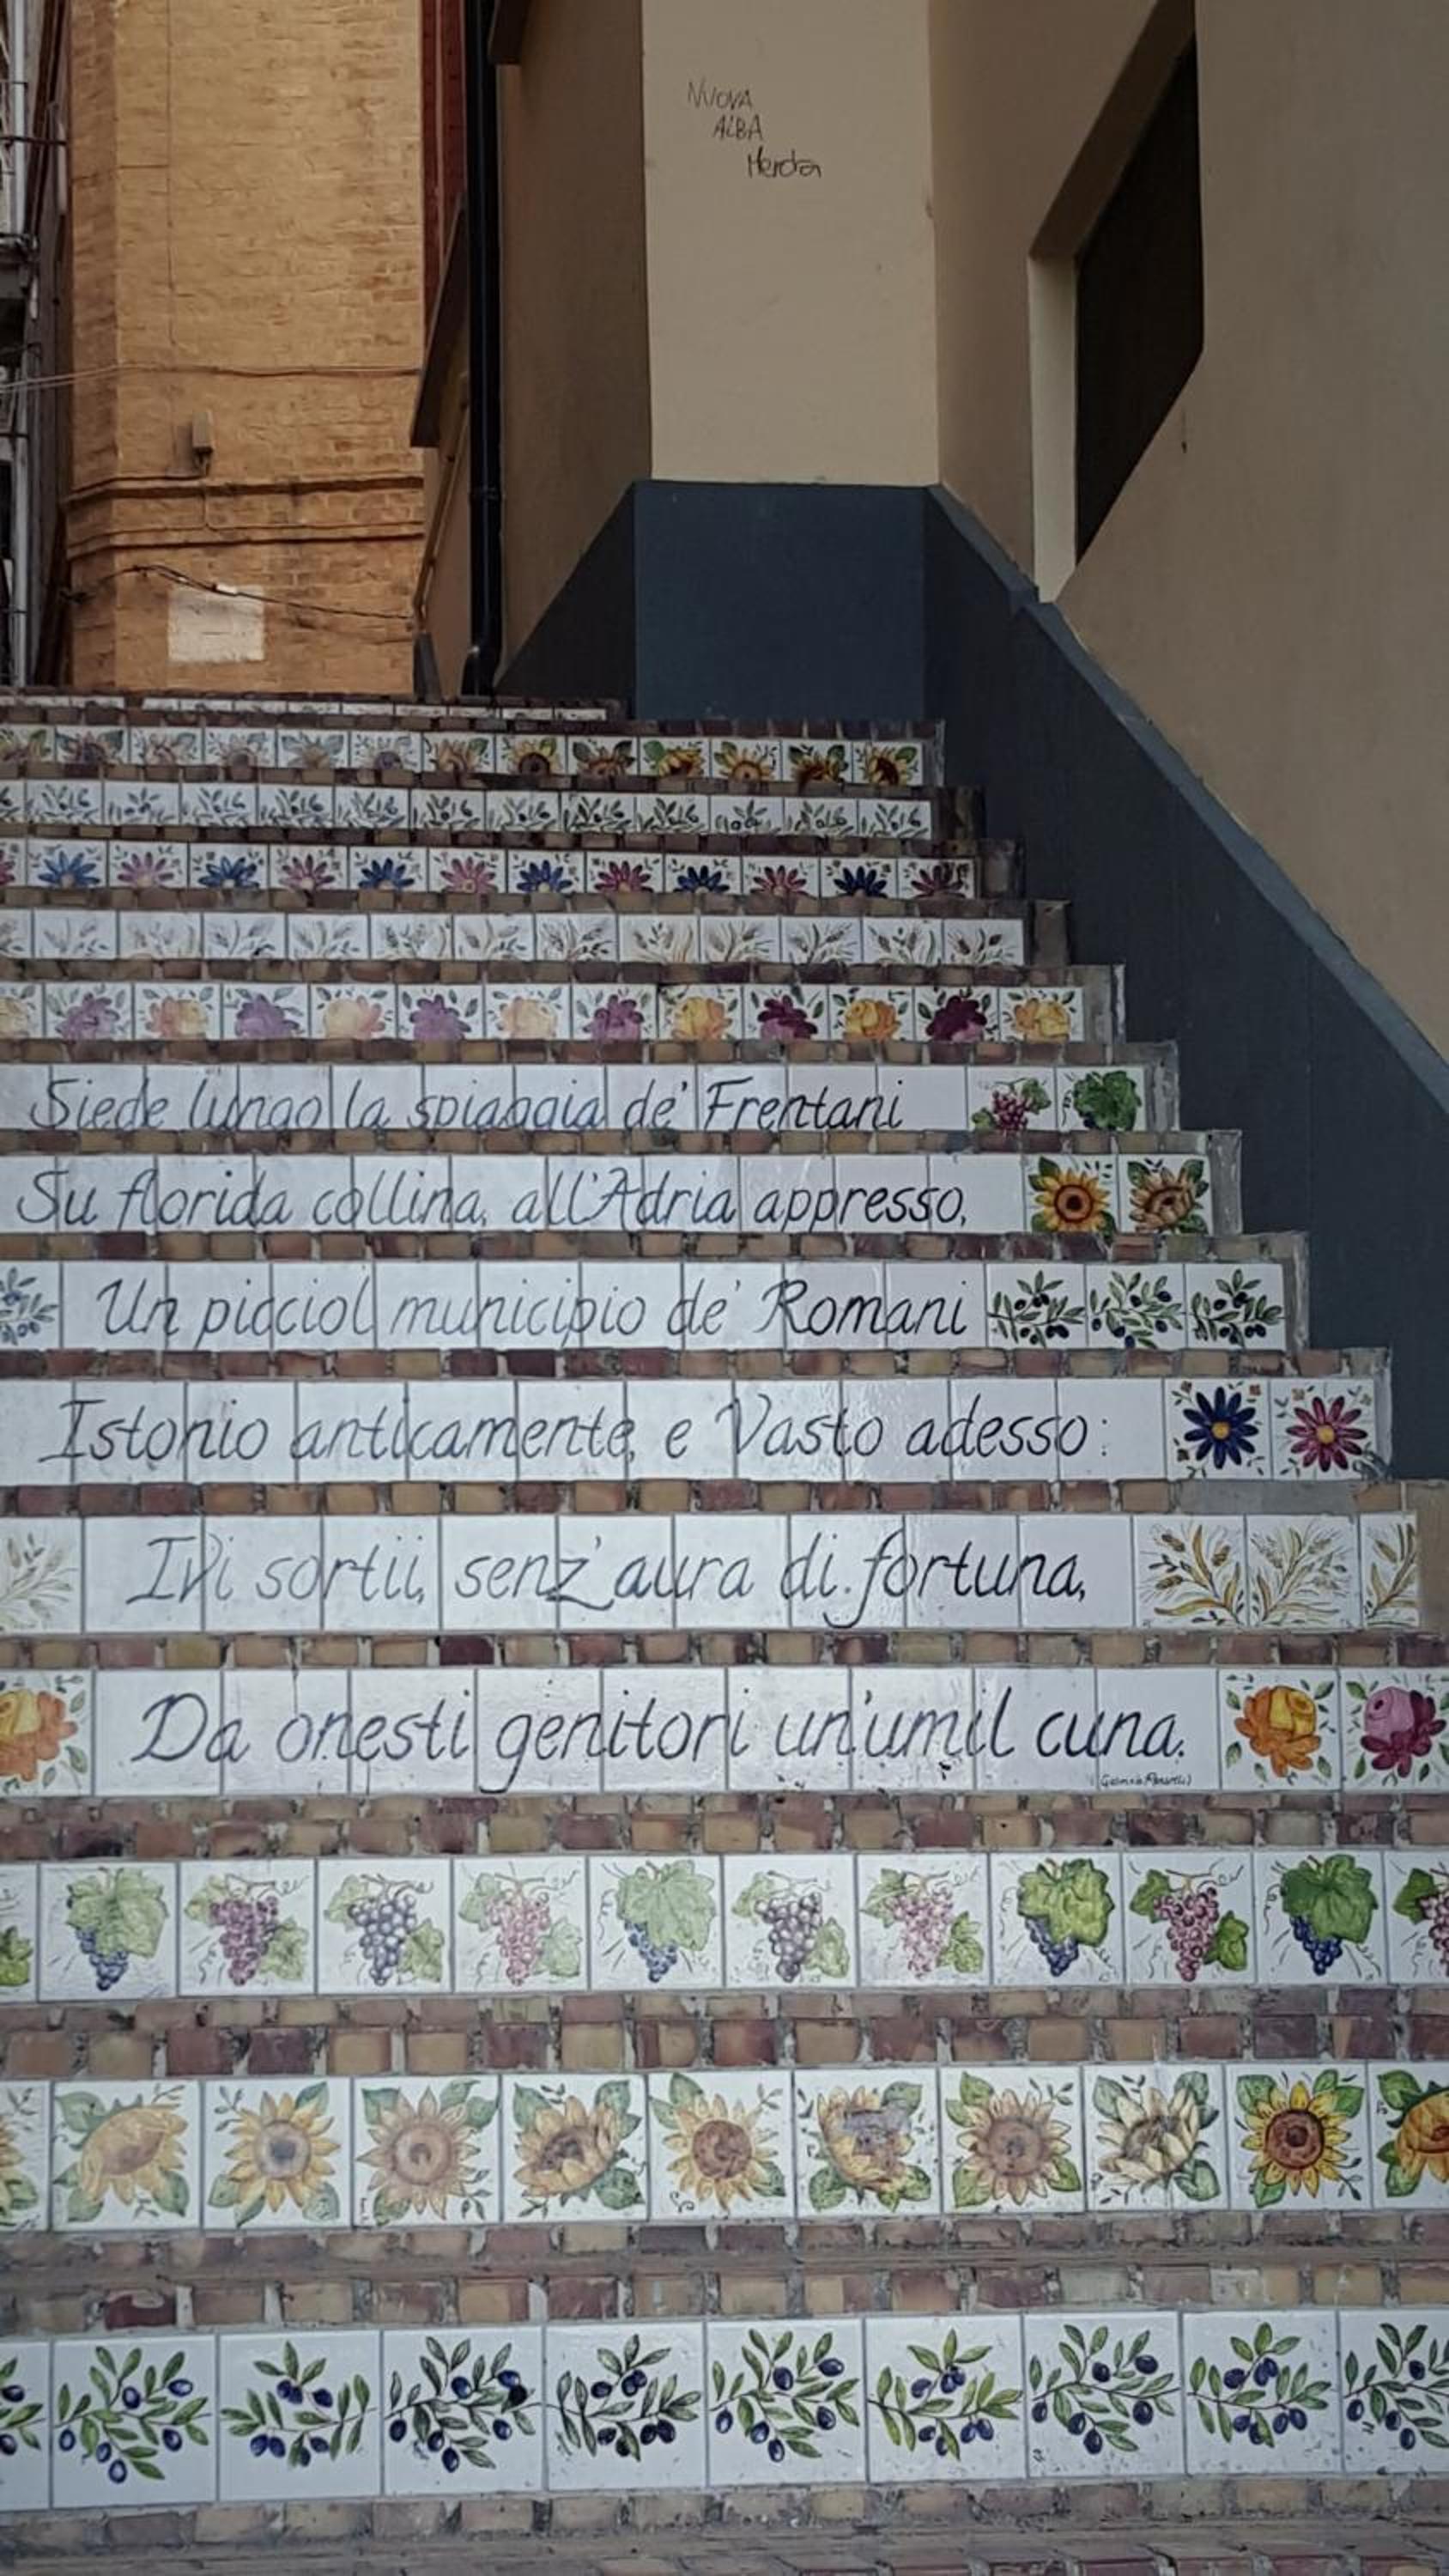 NUOVA
ALBA
Merda
Siede lungo la spiaggia de' Frentani
Su florida collina, all'Adria appresso,
Un picciol municipio de' Romani
Istonio anticamente, e Vasto adesso:
Ivi sortii, senz'aura di fortuna,
Da onesti genitori un'umil cuna.